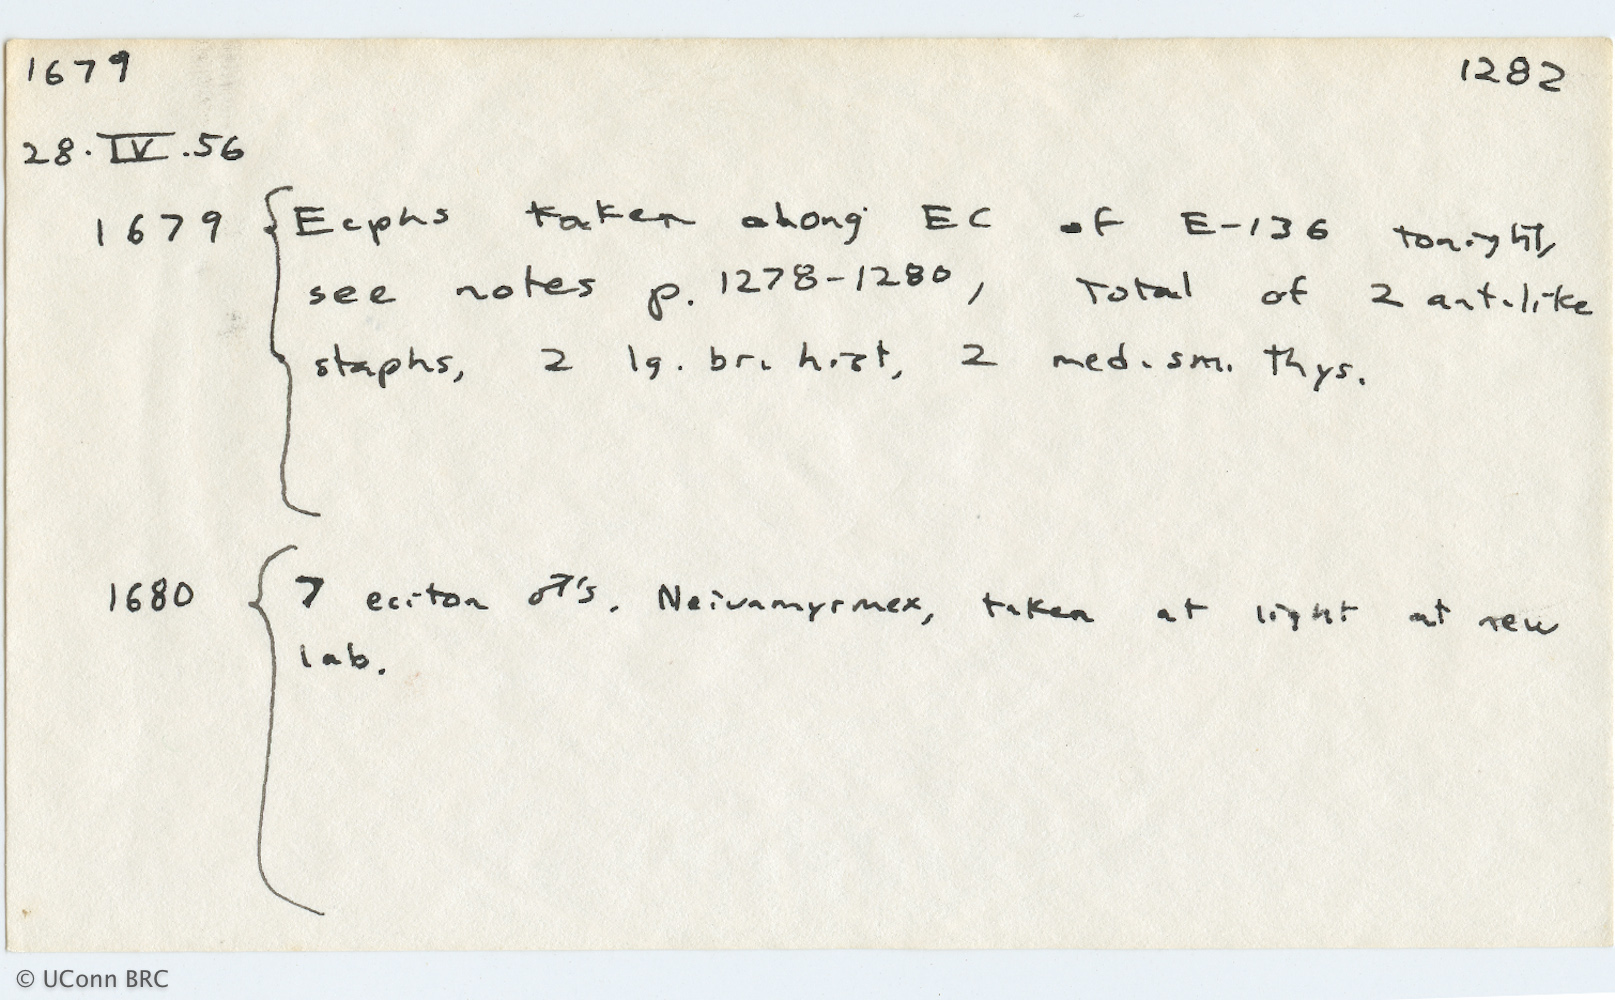 1679 1282
28.IV.56
1679 Ecphs taken along EC of E-136 tonight,
see notes p. 1278-1280, Total of 2 ant-like
staphs, 2 lg. br. hist, 2 med. sm. thys.
1680 7 eciton ♂'s. Neivamyrmex, taken at light at new
lab.
© UConn BRC